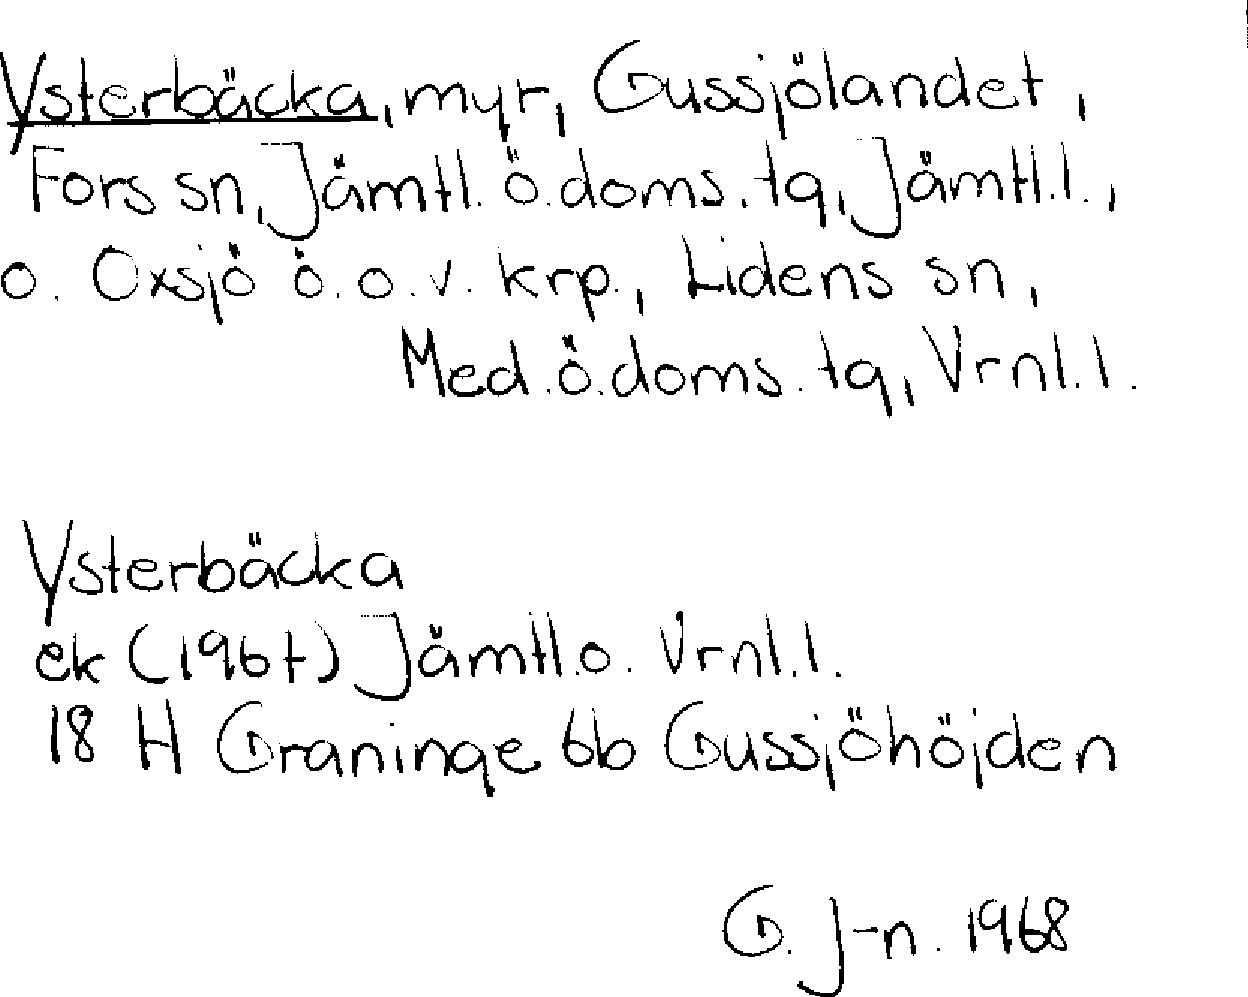 Ysterbäcka, myr, Gussjölandet,
Fors sn, Jämtl. ö. doms. tg, Jämtl.l.,
o. Oxsjö ö. o. v. krp., Lidens sn,
Med. ö. doms. tg, Vrnl. l.
Ysterbäcka
ek (1967) Jämtl. o. Vrnl. l.
18 H Graninge 6b Gussjöhöjden
G. J-n. 1968